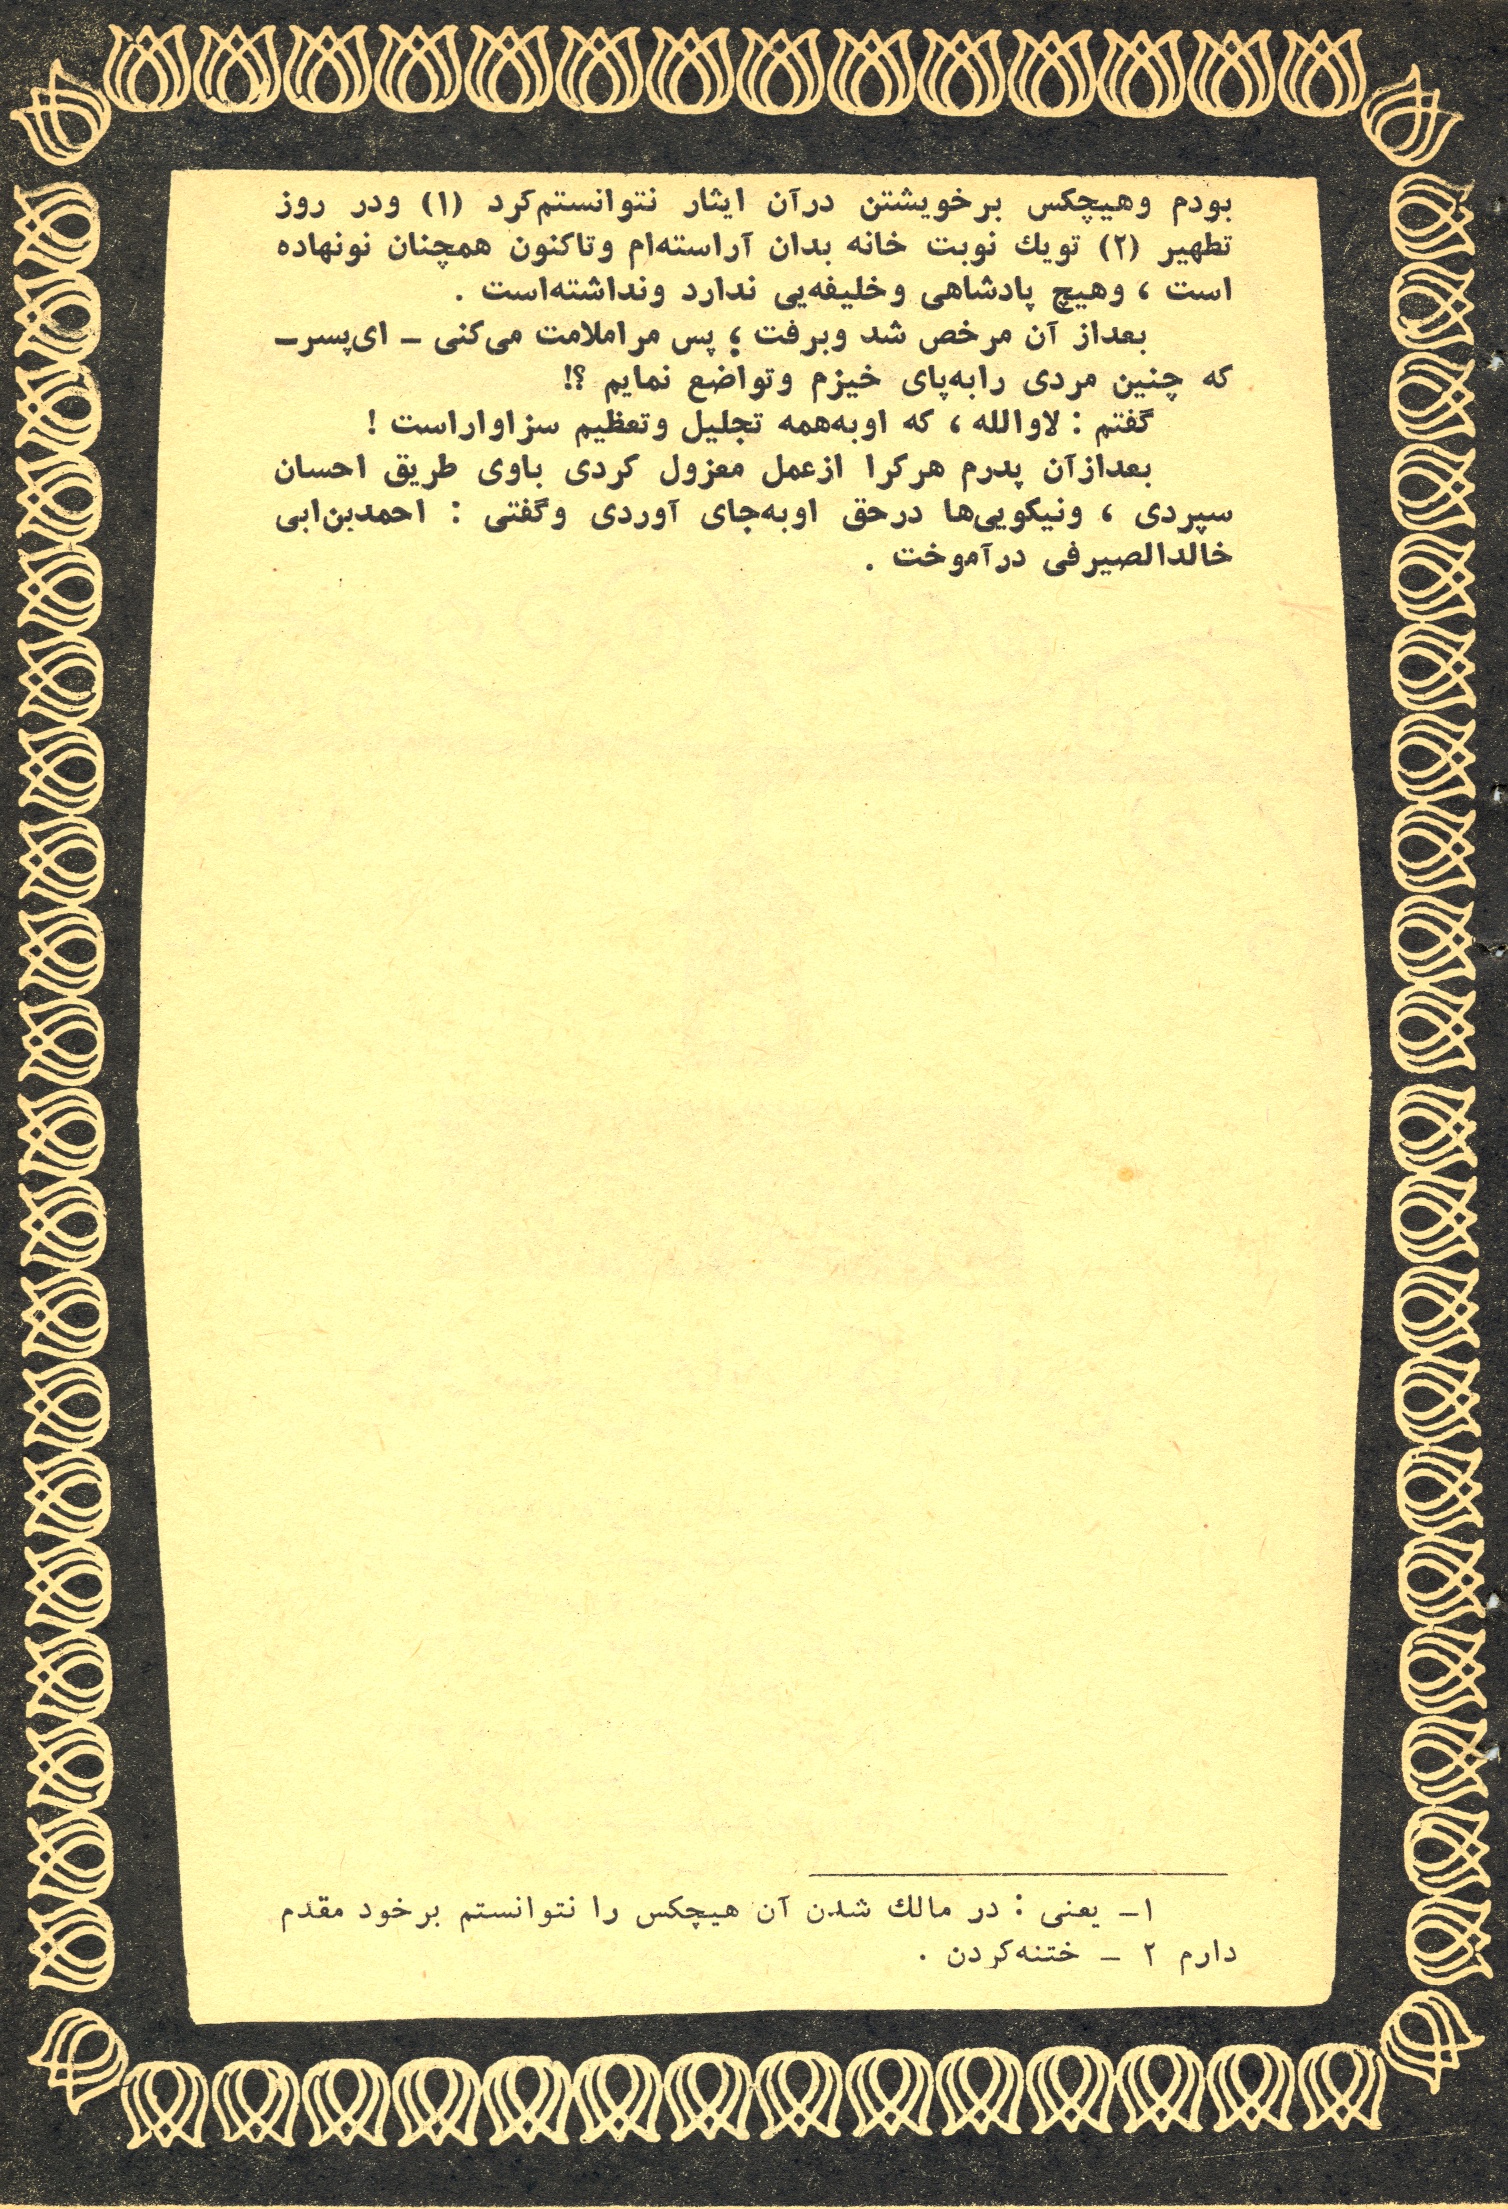 بودم وهیچکس برخویشتن درآن ایثار نتوانستم‌کرد (۱) ودر روز
تطهیر (۲) تویك نوبت خانه بدان آراسته‌ام وتاکنون همچنان نونهاده
است ، وهیچ پادشاهی وخلیفه‌یی ندارد ونداشته‌است .
بعداز آن مرخص شد وبرفت ؛ پس مراملامت می‌کنی – ای‌پسر–
که چنین مردی رابه‌پای خیزم وتواضع نمایم ؟!
گفتم : لاوالله ، که اوبه‌همه تجلیل وتعظیم سزاواراست !
بعدازآن پدرم هرکرا ازعمل معزول کردی باوی طریق احسان
سپردی ، ونیکویی‌ها درحق اوبه‌جای آوردی وگفتی : احمدبن‌ابی
خالدالصیرفی درآموخت .
۱– یعنی : در مالك شدن آن هیچکس را نتوانستم برخود مقدم
دارم ۲ – ختنه‌کردن .